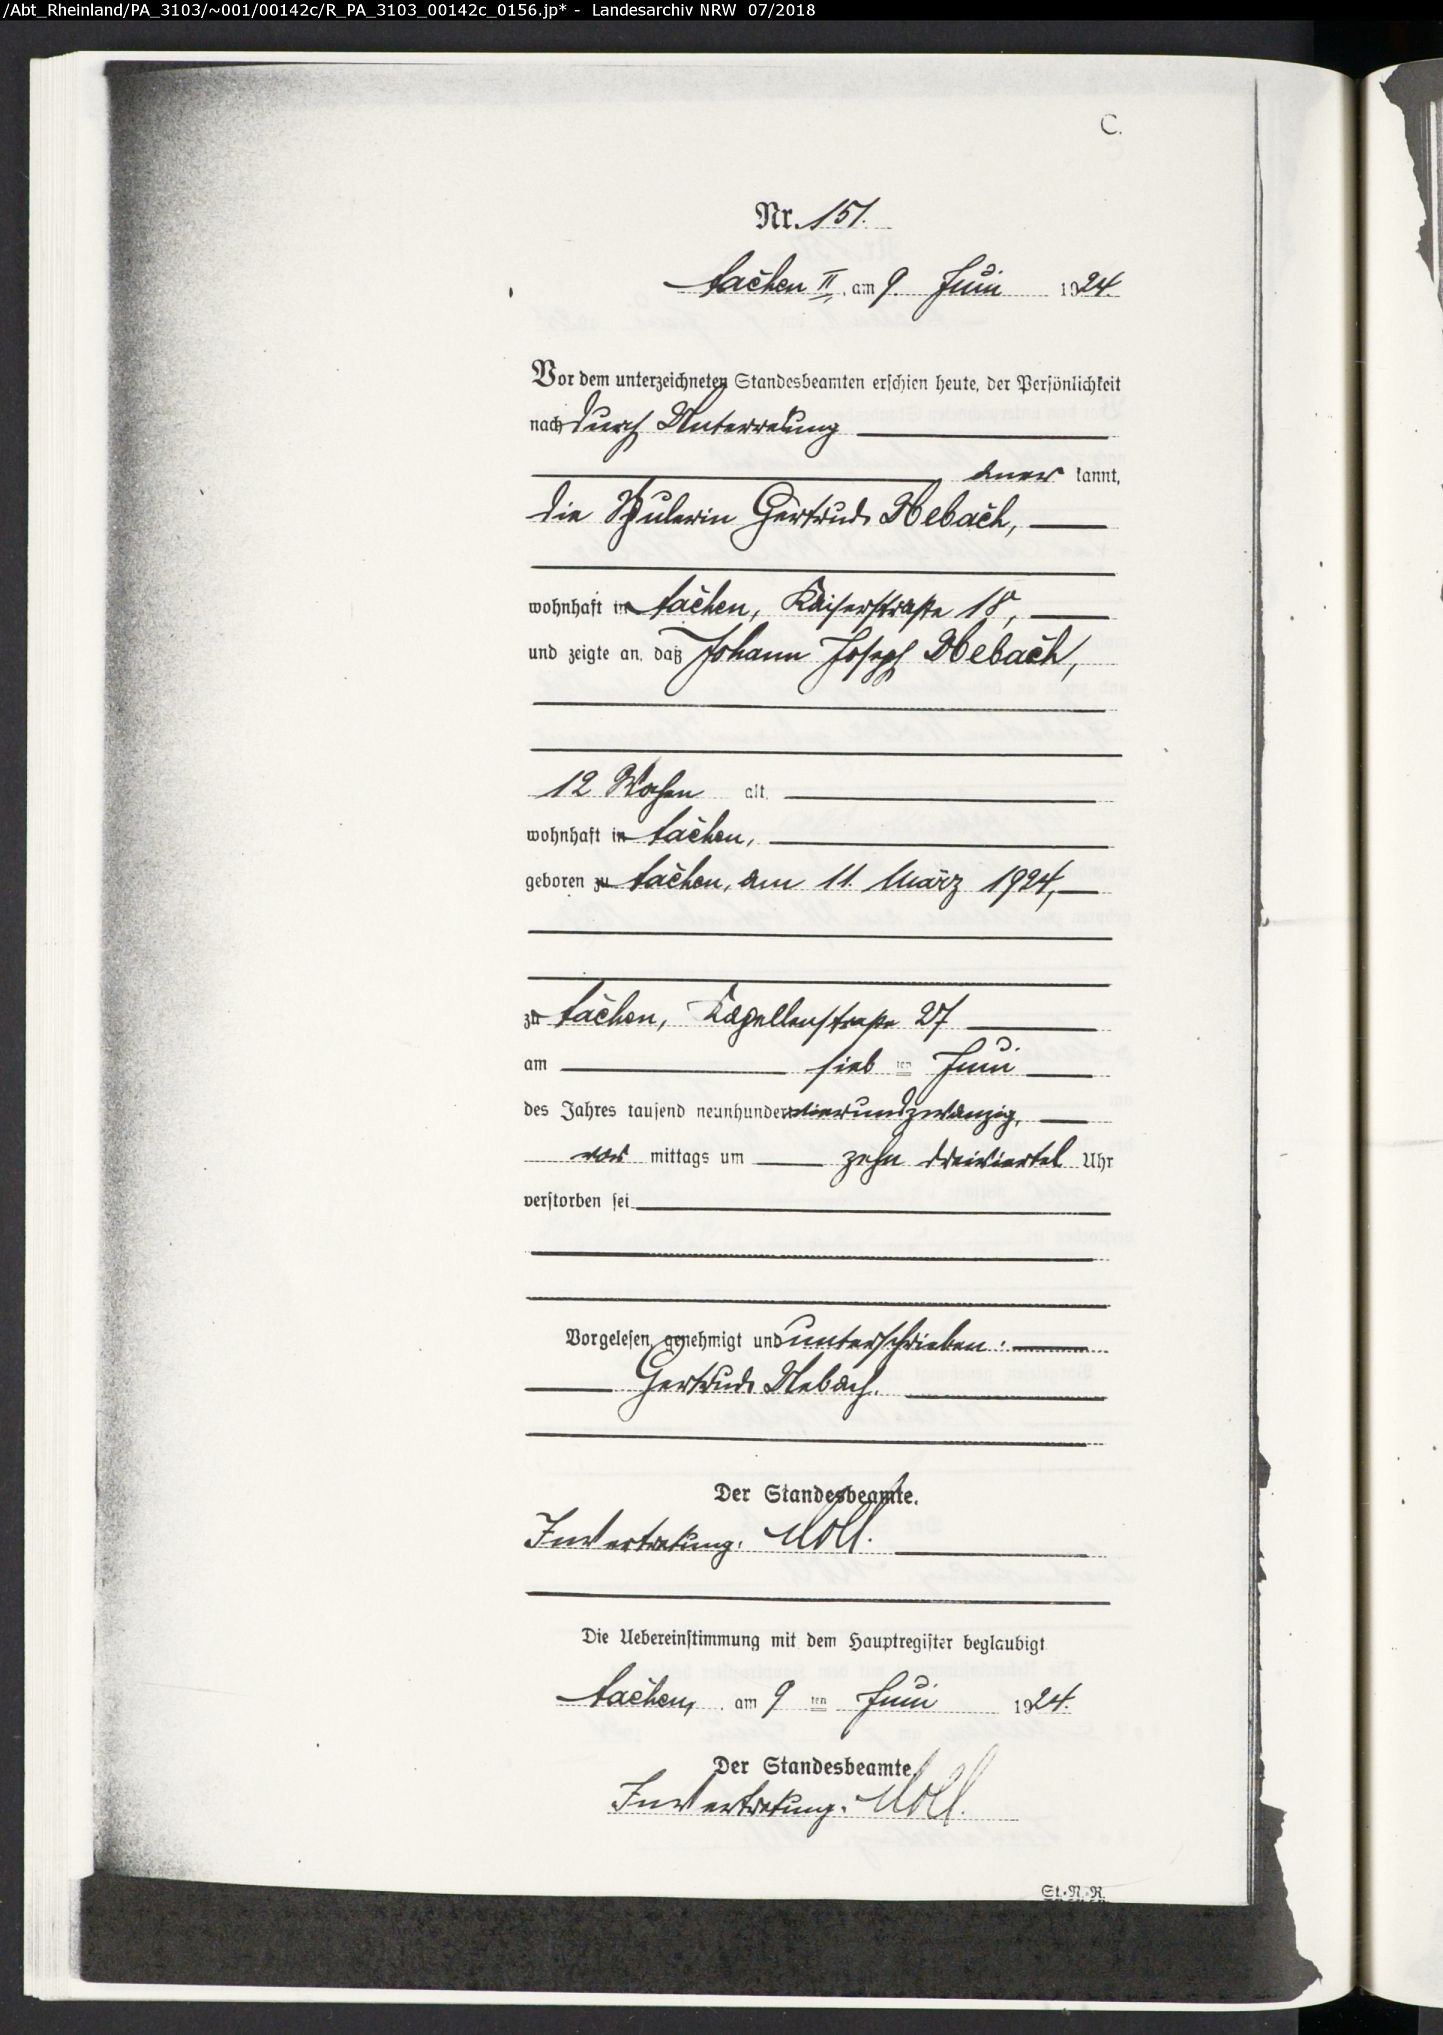 /Abt_Rheinland/PA_3103/~001/00142c/R_PA_3103_00142c_0156.jp* - Landesarchiv NRW 07/2018
C.
Nr. 151.
Aachen II, am 9. Juni 1924.
Vor dem unterzeichneten Standesbeamten erschien heute, der Persönlichkeit
nach durch Unterredung
aner kannt,
die Spulerin Gertrud Hebach,
wohnhaft in Aachen, Kaiserstraße 18,
und zeigte an, daß Johann Joseph Hebach,
12 Wochen alt,
wohnhaft in Aachen,
geboren zu Aachen, am 11. März 1924,
zu Aachen, Kapellenstraße 27
am sieb ten Juni
des Jahres tausend neunhundert vierundzwanzig,
vor mittags um zehn dreiviertel Uhr
verstorben sei
Vorgelesen, genehmigt und unterschrieben:
Gertrud Hebach.
Der Standesbeamte.
In Vertretung: Moll.
Die Uebereinstimmung mit dem Hauptregister beglaubigt
Aachen, am 9 ten Juni 1924.
Der Standesbeamte.
In Vertretung: Moll.
St.-N.-R.